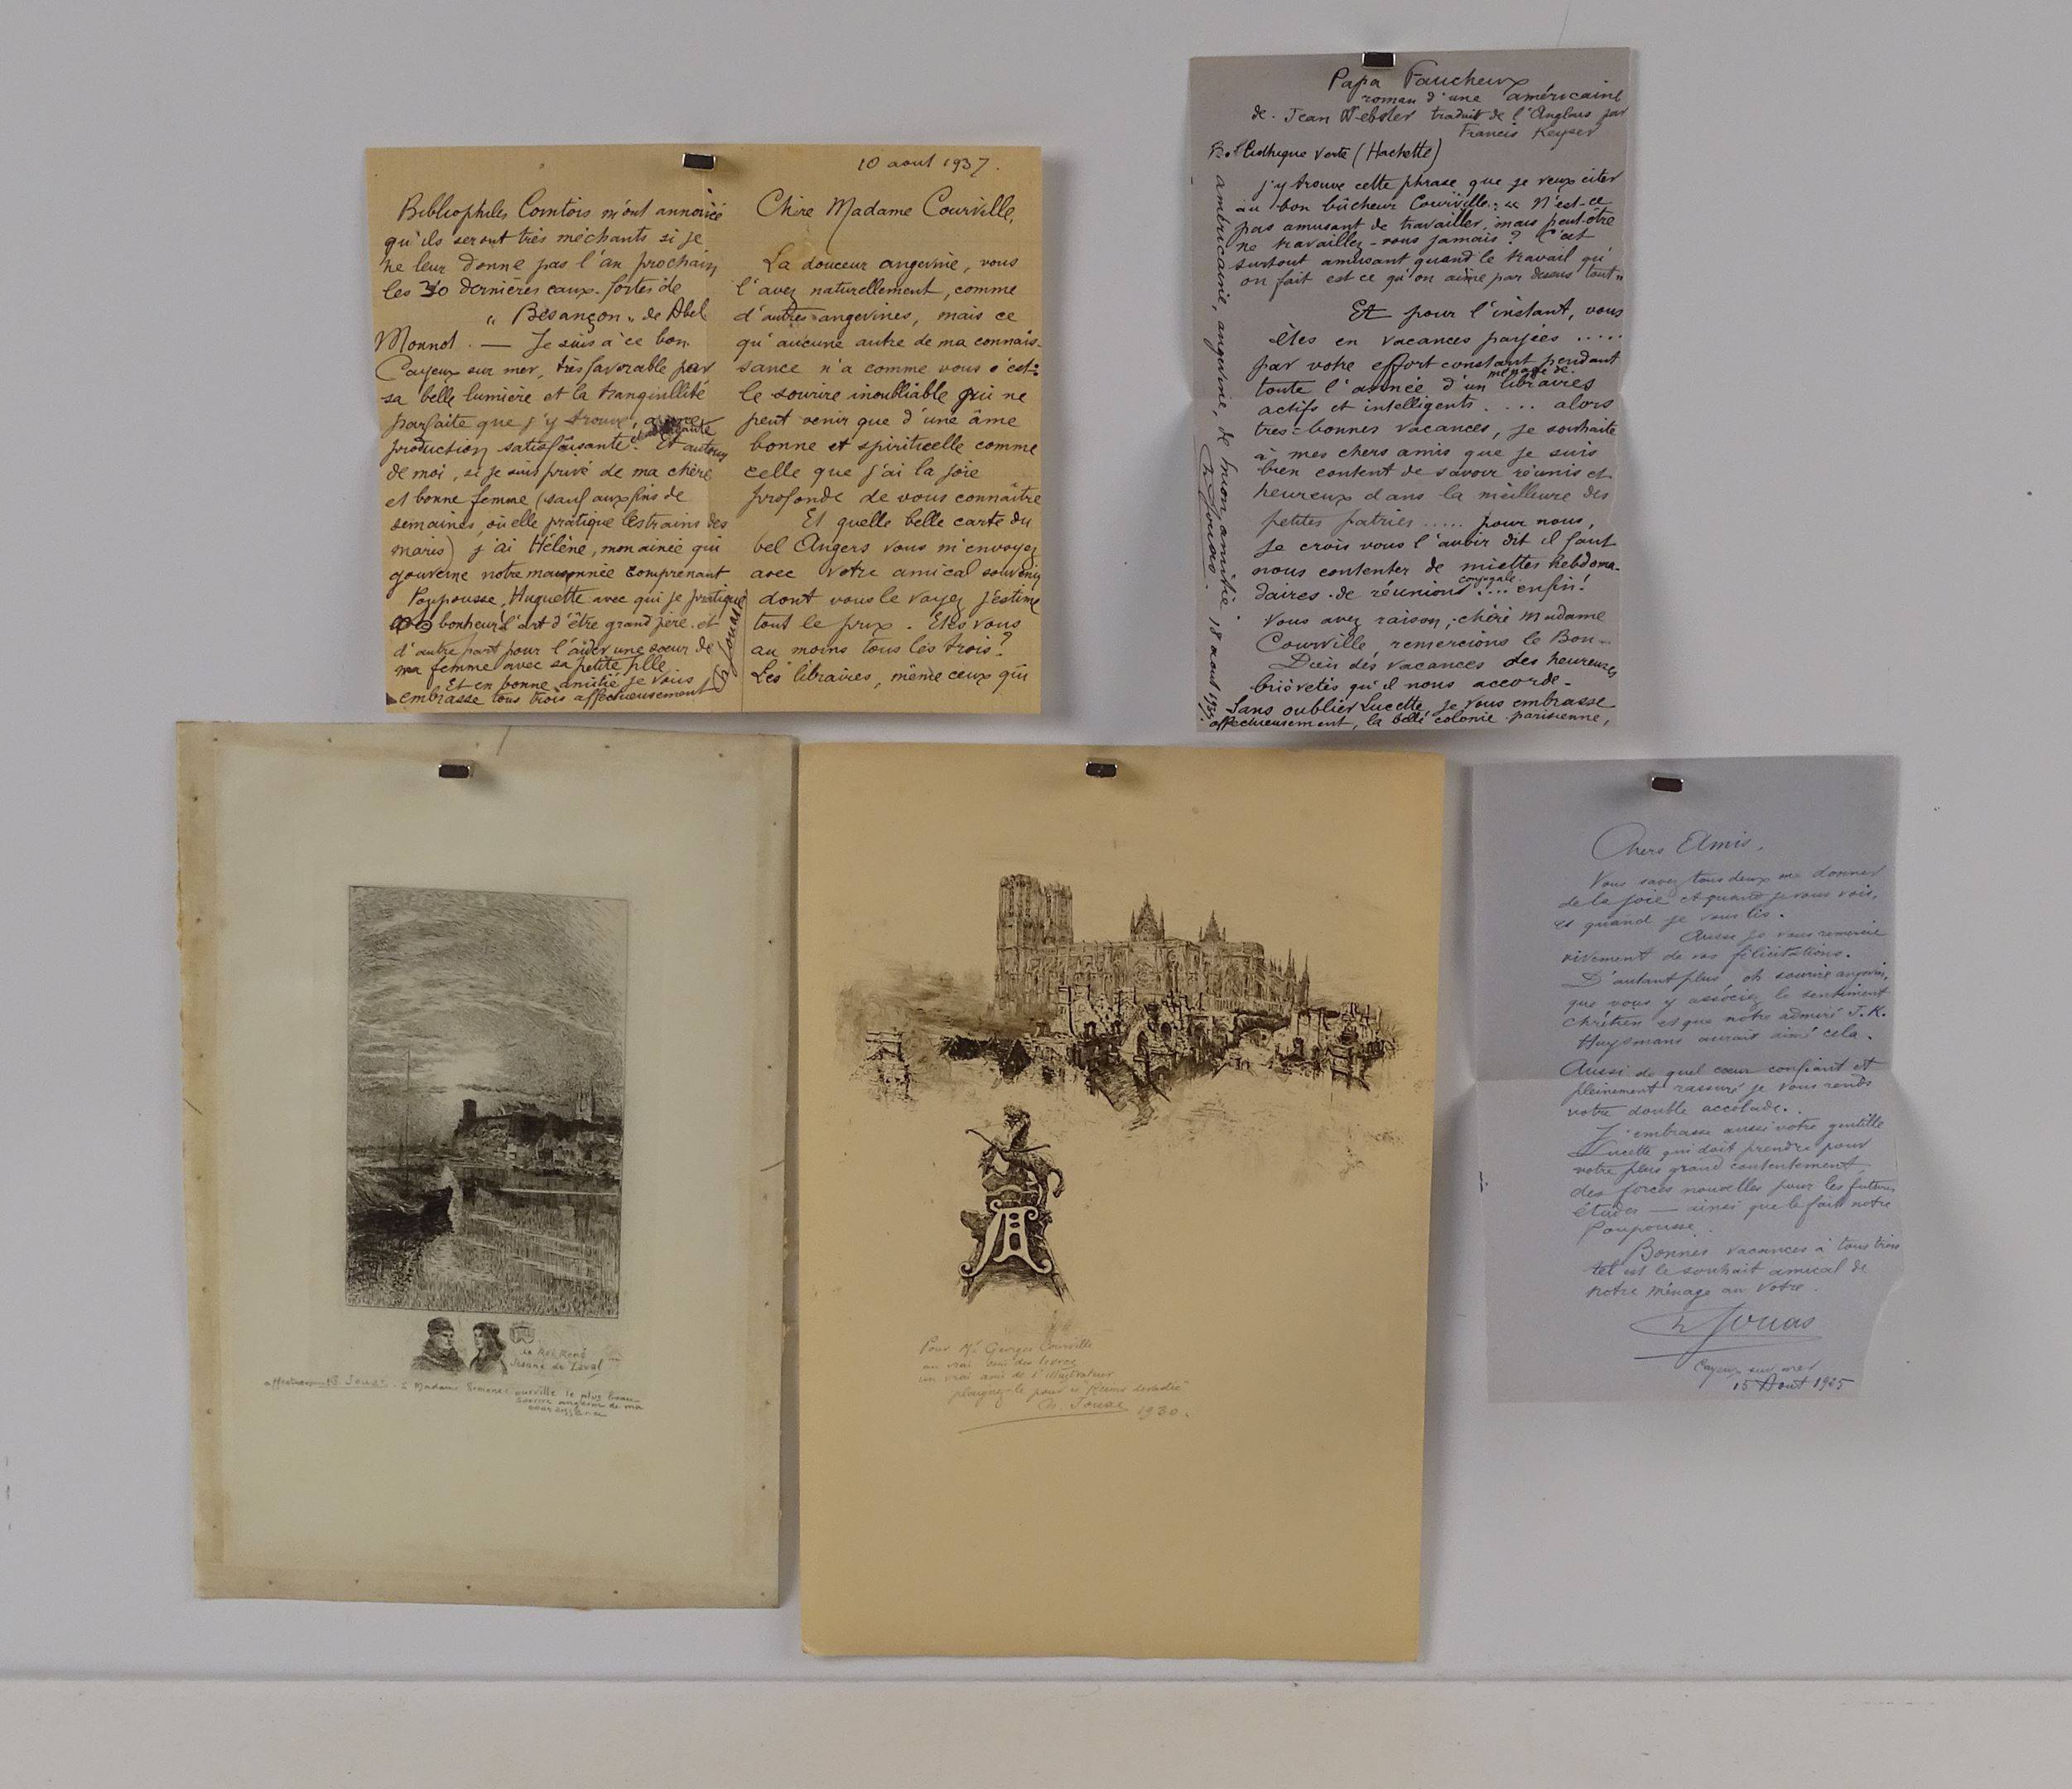 10 aout 1937.
Chère Madame Courville,
La douceur angevine, vous
l'avez naturellement, comme
d'autres angevines, mais ce
qu'aucune autre de ma connais-
sance n'a comme vous c'est:
le sourire inoubliable qui ne
peut venir que d'une âme
bonne et spirituelle comme
celle que j'ai la joie
profonde de vous connaître
Et quelle belle carte du
bel Angers vous m'envoyez
avec votre amical souvenir
dont vous le voyez j'estime
tout le prix. Etes vous
au moins tous les trois?
Les libraires, même ceux qui
Bibliophiles Comtois m'ont annoncé
qu'ils seront très méchants si je
ne leur donne pas l'an prochain
les 30 dernières eaux-fortes de
"Besançon" de Abel
Monnot. — Je suis à ce bon
Cayeux sur mer, très favorable par
sa belle lumière et la tranquillité
parfaite que j'y trouve, à
production satisfaisante. Et autour
de moi, si je suis privé de ma chère
et bonne femme (sauf aux fins de
semaines, où elle pratique les trains des
maris) j'ai Hélène, mon ainée qui
gouverne notre maisonnée comprenant
Poupousse, Huguette avec qui je pratique
bonheur l'art d'être grand père et
d'autre part pour l'aider une soeur de
ma femme avec sa petite fille
Et en bonne amitié je vous
embrasse tous trois affectueusement
Ch Jouas
Papa Faucheux
roman d'une américaine
de Jean Webster traduit de l'Anglais par
Francis Keyser
Bibliothèque Verte (Hachette)
j'y trouve cette phrase que je veux citer
au bon bûcheur Courville: "N'est-ce
pas amusant de travailler, mais peut-être
ne travaillez-vous jamais? C'est
surtout amusant quand le travail qu'
on fait est ce qu'on aime par dessus tout"
Et pour l'instant, vous
êtes en vacances payées .....
par votre effort constant pendant
toute l'année d'un ménage de libraires
actifs et intelligents .... alors
très bonnes vacances, je souhaite
à mes chers amis que je suis
bien content de savoir réunis et
heureux dans la meilleure des
petites patries ..... pour nous,
je crois vous l'avoir dit il faut
nous contenter de miettes hebdoma-
daires de réunions conjugale .... enfin!
Vous avez raison, chère Madame
Courville, remercions le Bon-
Dieu des vacances des heureuses
brièvetés qu'il nous accorde.
Sans oublier Lucette, je vous embrasse
affectueusement, la belle colonie parisienne,
américaine, angevine, de mon amitié. 18 aout 1937
Ch Jouas.
le Roi René
Jeanne de Laval
affectueux Ch Jouas à Madame Simone Courville le plus beau
sourire angevin de ma
Pour Mr Georges Courville
un vrai ami des livres
un vrai ami de l'illustrateur
plaignez-le pour ce "Reims dévasté"
Ch. Jouas 1930.
Chers Amis,
Vous savez tous deux me donner
de la joie et quand je vous vois,
et quand je vous lis.
Aussi je vous remercie
vivement de vos félicitations.
D'autant plus, oh sourire angevin,
que vous y associez le sentiment
chrétien et que notre admiré J.K.
Huysmans aurait aimé cela.
Aussi de quel cœur confiant et
pleinement rassuré je vous rends
votre double accolade.
J'embrasse aussi votre gentille
Lucette qui doit prendre pour
votre plus grand contentement
des forces nouvelles pour les futures
études — ainsi que le fait notre
Poupousse.
Bonnes vacances à tous trois
tel est le souhait amical de
notre ménage au votre.
Ch Jouas
Cayeux sur mer
15 Aout 1925